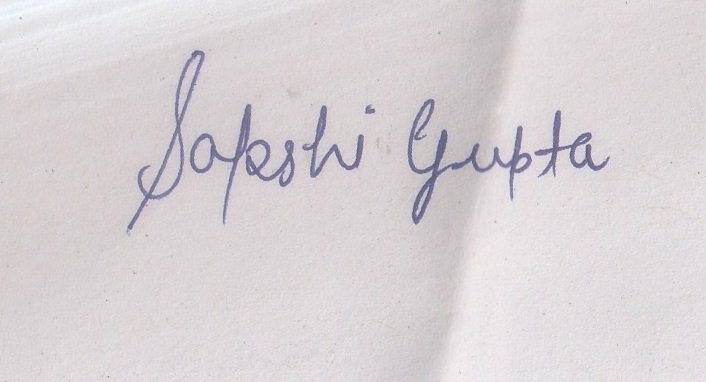 Sakshi Gupta